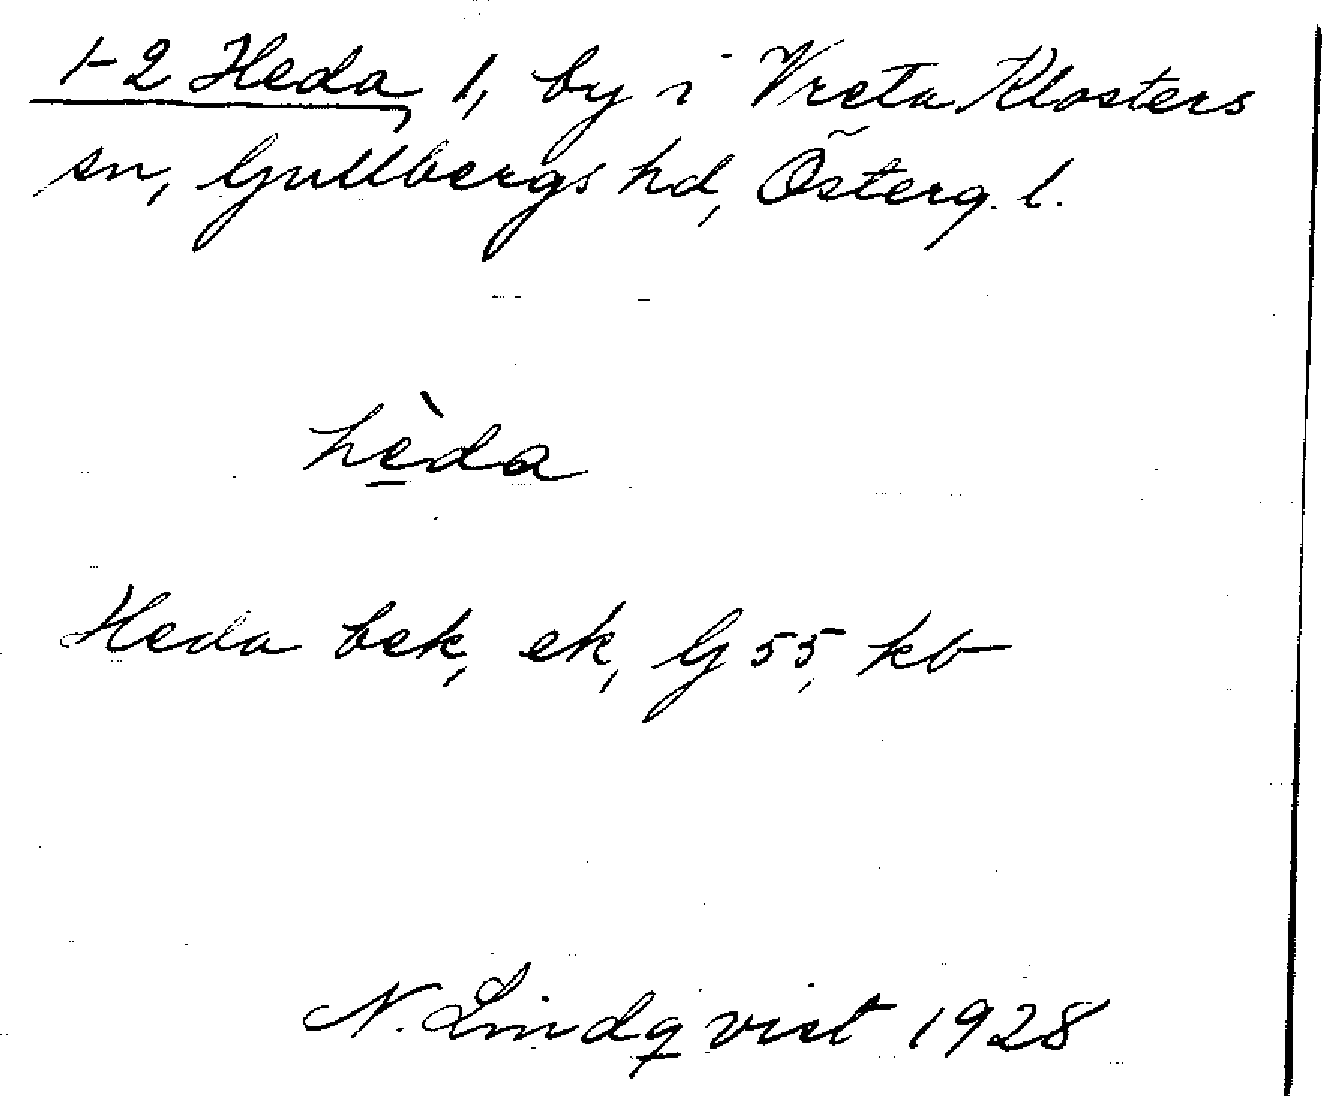 1-2 Heda, 1, by i Vreta Klosters
sn, Gullbergs hd, Österg. l.
hèda
Heda bek, ek, G 55, kb
N. Lindqvist 1928